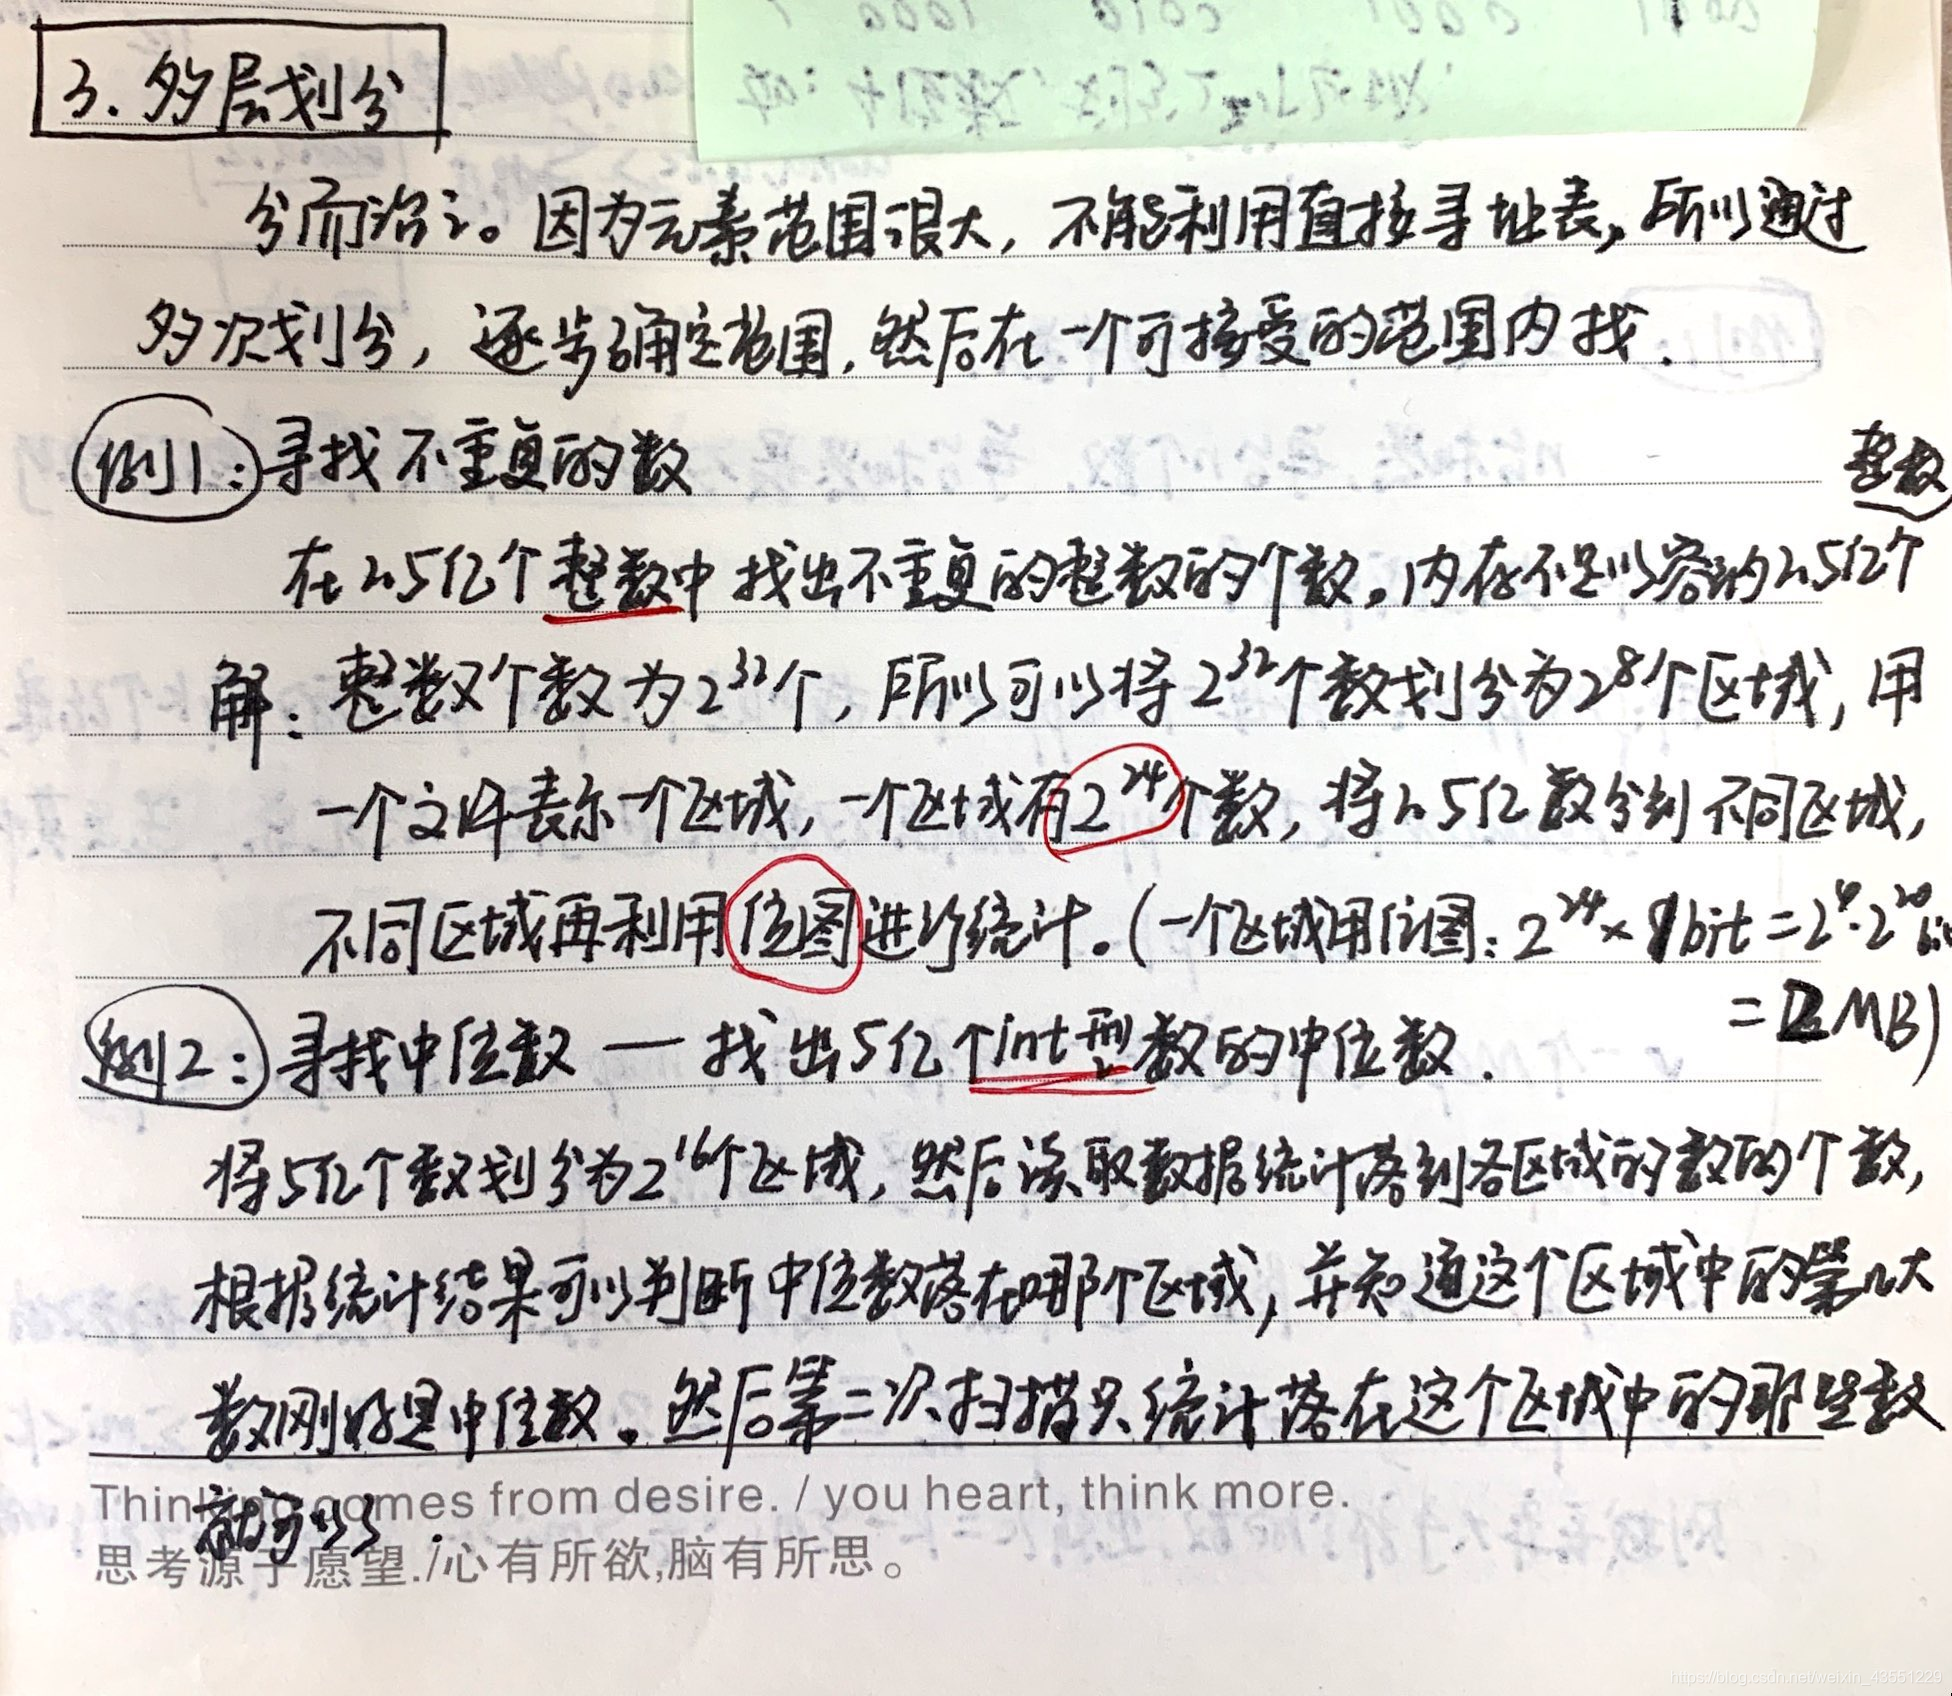 3. 多层划分
分而治之。因为元素范围很大，不能利用直接寻址表，所以通过
多次划分，逐步确定范围，然后在一个可接受的范围内找．
例1：寻找不重复的数
整数
在2.5亿个整数中找出不重复的整数的个数。内存不足以容纳2.5亿个
解：整数个数为2³²个，所以可以将2³²个数划分为2⁸个区域，用
一个文件表示一个区域，一个区域有2²⁴个数，将2.5亿数分到不同区域，
不同区域再利用位图进行统计。（一个区域用位图：2²⁴×1bit=2⁴·2²⁰bit
=2MB）
例2：寻找中位数 — 找出5亿个int型数的中位数．
将5亿个数划分为2¹⁶个区域，然后读取数据统计落到各区域的数的个数，
根据统计结果可以判断中位数落在哪个区域，并知道这个区域中的第几大
数刚好是中位数。然后第二次扫描只统计落在这个区域中的那些数
就可以了．
Thinking comes from desire. / you heart, think more.
思考源于愿望./心有所欲,脑有所思。
https://blog.csdn.net/weixin_43551229